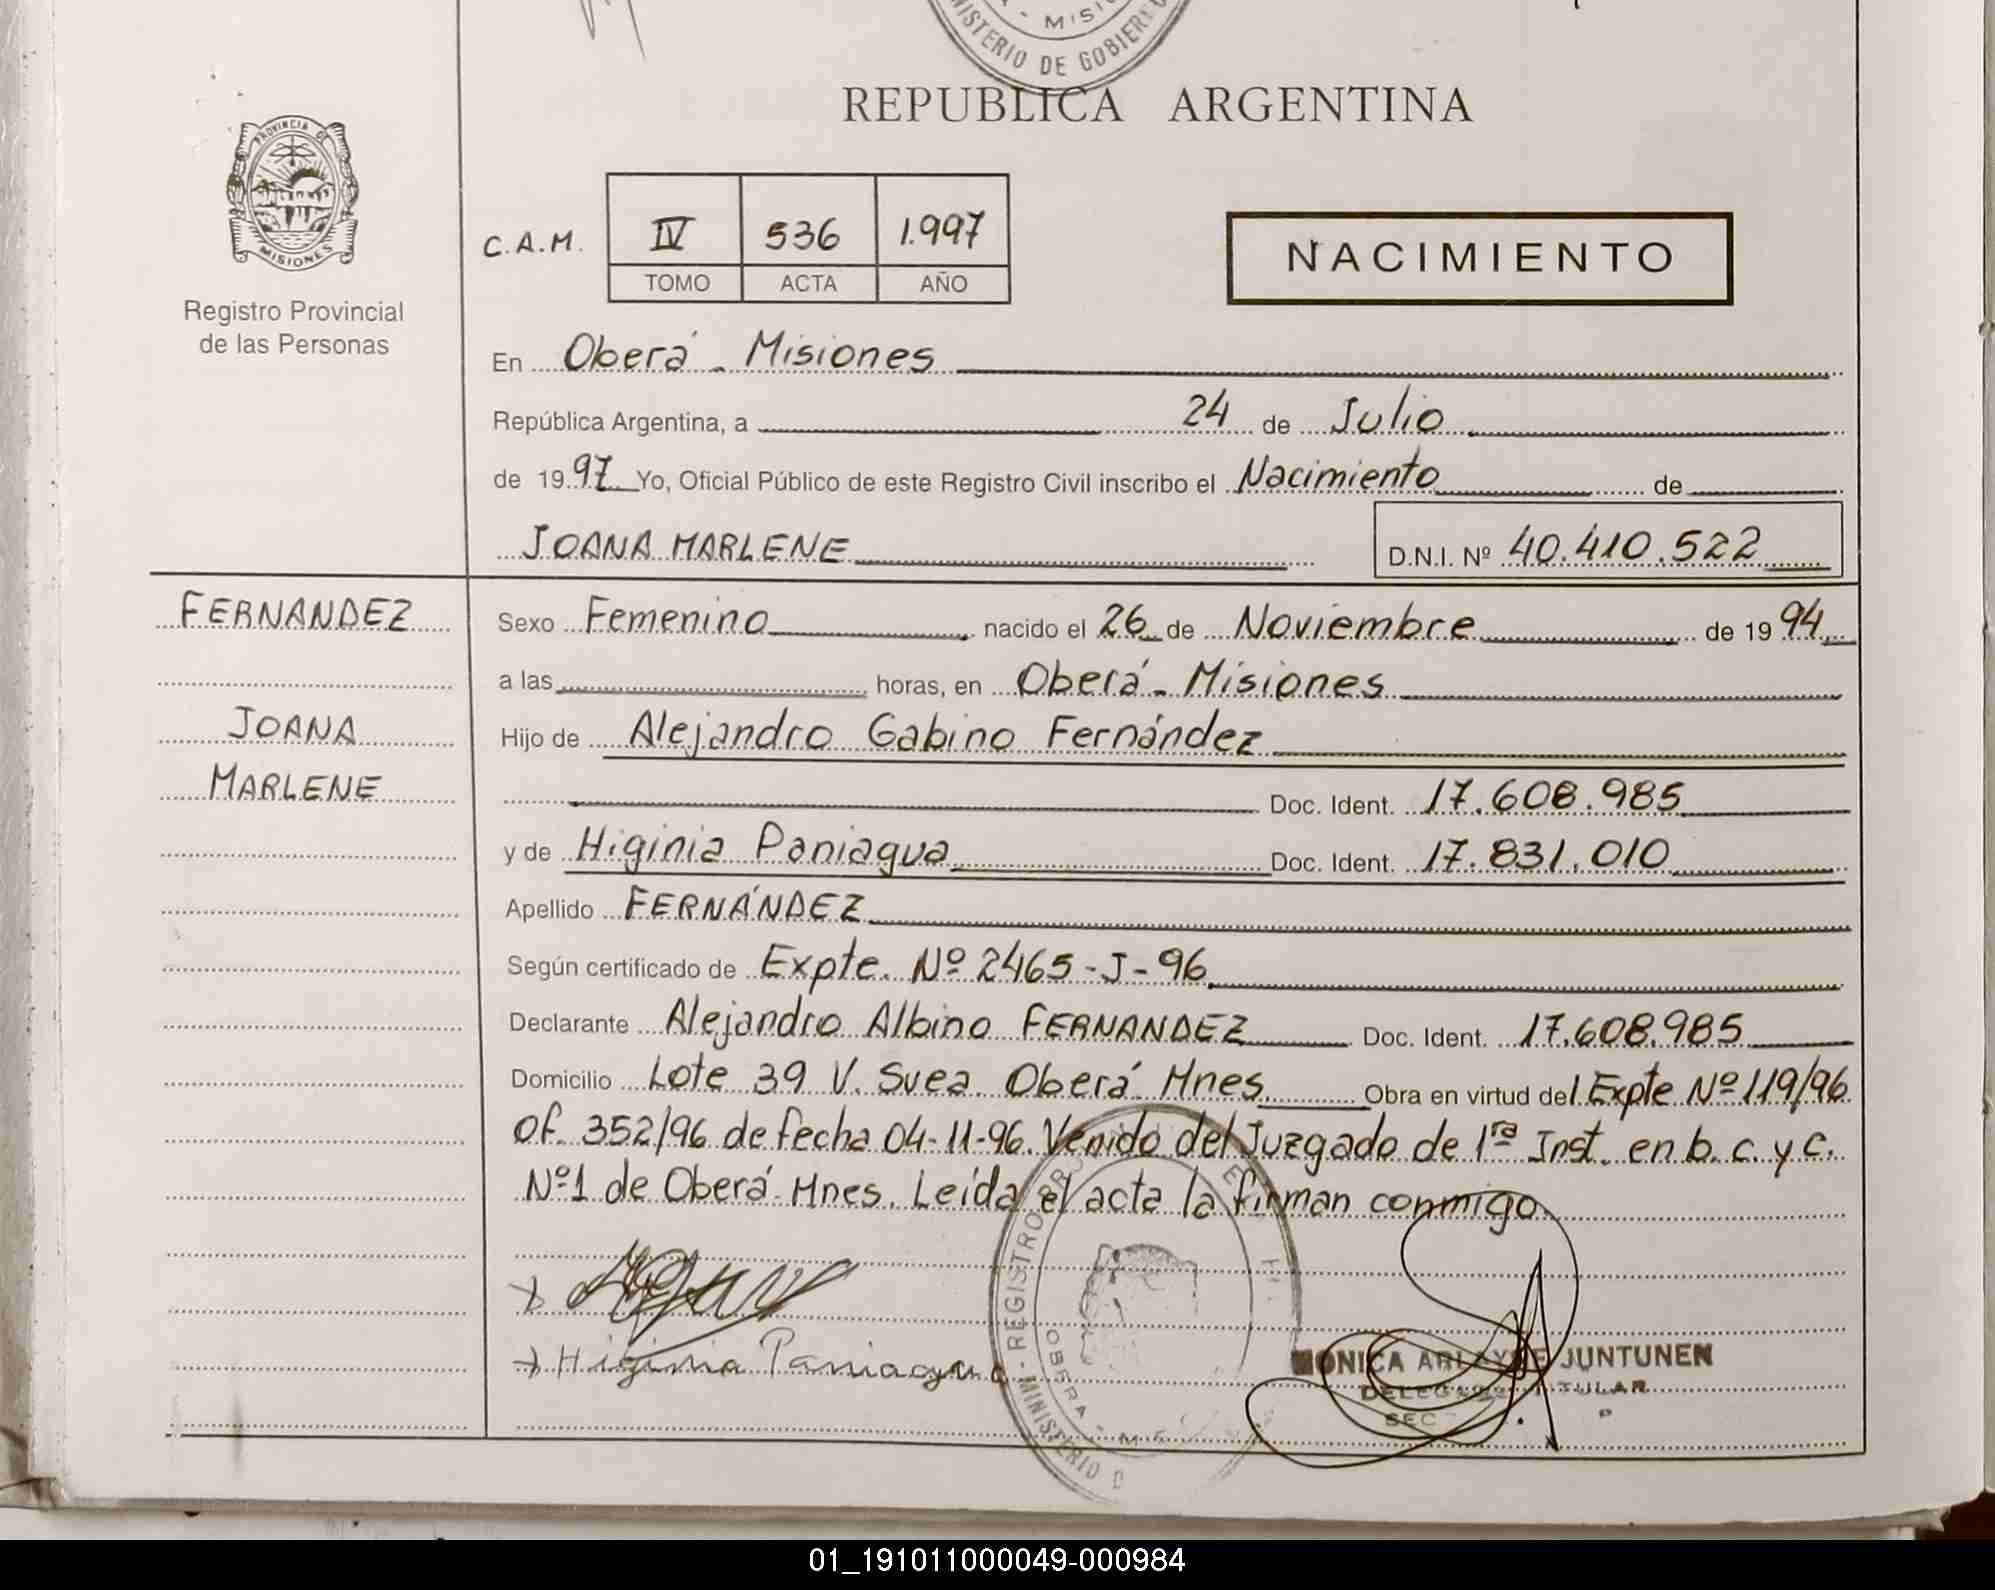 MISI
MINISTERIO DE GOBIERNO
REPUBLICA ARGENTINA
PROVINCIA DE
MISIONES
Registro Provincial
de las Personas
C.A.M.
IV 536 1.997
TOMO ACTA AÑO
NACIMIENTO
En Oberá - Misiones
República Argentina, a 24 de Julio
de 1997 Yo, Oficial Público de este Registro Civil inscribo el Nacimiento de
JOANA MARLENE D.N.I. Nº 40.410.522
FERNANDEZ
JOANA
MARLENE
Sexo Femenino nacido el 26 de Noviembre de 1994
a las horas, en Oberá - Misiones
Hijo de Alejandro Gabino Fernández
Doc. Ident. 17.608.985
y de Higinia Paniagua Doc. Ident. 17.831.010
Apellido FERNÁNDEZ
Según certificado de Expte. Nº 2465-J-96
Declarante Alejandro Albino FERNANDEZ Doc. Ident. 17.608.985
Domicilio Lote 39 V. Svea. Oberá Mnes. Obra en virtud del Expte Nº 119/96
Of. 352/96 de fecha 04-11-96. Venido del Juzgado de 1ra Inst. en b. c. y c.
Nº1 de Oberá Mnes. Leída el acta la firman conmigo.
Higinia Paniagua
REGISTRO
OBERA
MINISTERIO D
MONICA ARLAYNE JUNTUNEN
DELEGADA TITULAR
01_191011000049-000984